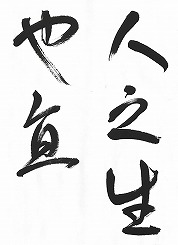 人之生
也直